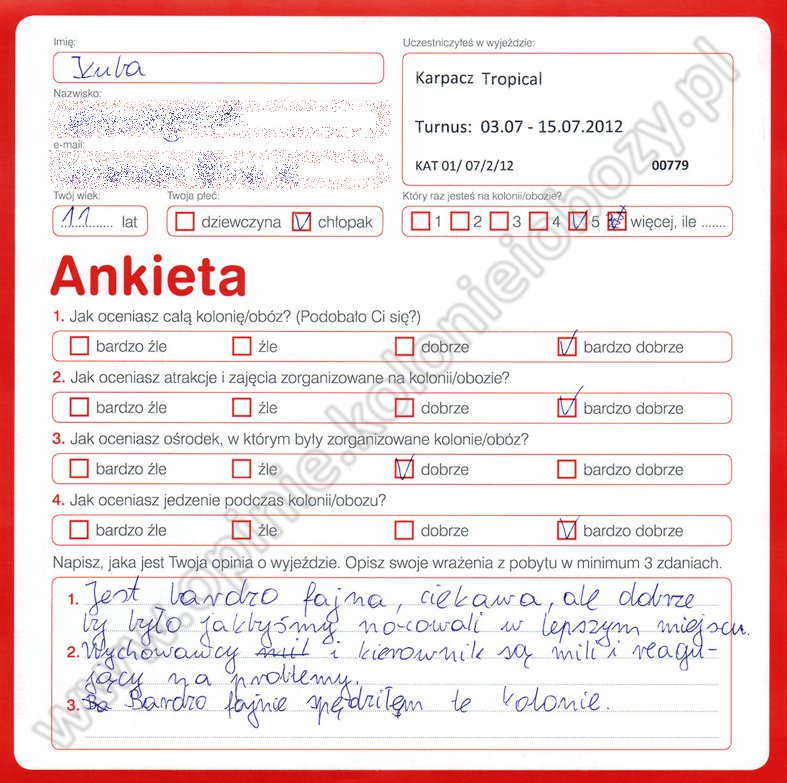 Imię:
Kuba
Uczestniczyłeś w wyjeździe:
Karpacz Tropical
Turnus: 03.07 - 15.07.2012
KAT 01/ 07/2/12 00779
Nazwisko:
e-mail:
Twój wiek:
11 lat
Twoja płeć:
dziewczyna chłopak
Który raz jesteś na kolonii/obozie?
1 2 3 4 5 więcej, ile .......
Ankieta
1. Jak oceniasz całą kolonię/obóz? (Podobało Ci się?)
bardzo źle źle dobrze bardzo dobrze
2. Jak oceniasz atrakcje i zajęcia zorganizowane na kolonii/obozie?
bardzo źle źle dobrze bardzo dobrze
3. Jak oceniasz ośrodek, w którym były zorganizowane kolonie/obóz?
bardzo źle źle dobrze bardzo dobrze
4. Jak oceniasz jedzenie podczas kolonii/obozu?
bardzo źle źle dobrze bardzo dobrze
Napisz, jaka jest Twoja opinia o wyjeździe. Opisz swoje wrażenia z pobytu w minimum 3 zdaniach.
1. Jest bardzo fajna, ciekawa, ale dobrze
by było jakbyśmy nocowali w lepszym miejscu.
2. Wychowawcy mil i kierownik są mili i reagu-
jący na problemy.
3. Ba Bardzo fajnie spędziłem te kolonie.
www.opinie.kolonieiobozy.pl